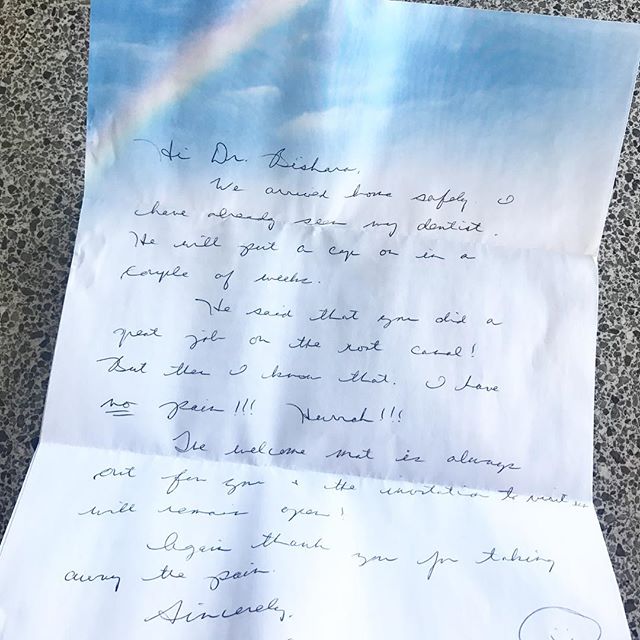 Hi Dr. Bishara,
We arrived home safely. I
have already seen my dentist.
He will put a cap on in a
couple of weeks.
He said that you did a
great job on the root canal!
But then I know that. I have
no pain!!! Hurrah!!!
The welcome mat is always
out for you & the invitation to visit us
will remain open!
Again thank you for taking
away the pain.
Sincerely,